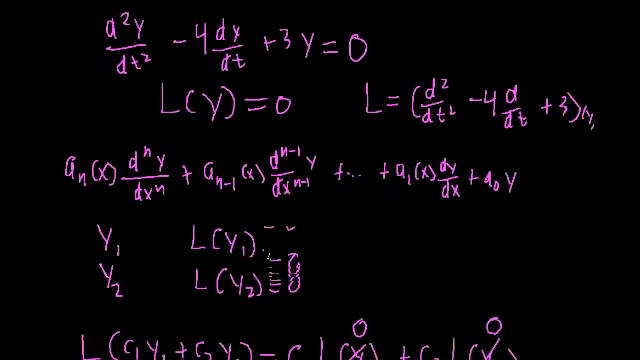 d²y/dt² - 4 dy/dt + 3y = 0
L(y) = 0 L = (d²/dt² - 4 d/dt + 3)(y)
aₙ(x) dⁿy/dxⁿ + aₙ₋₁(x) dⁿ⁻¹y/dxⁿ⁻¹ + ... + a₁(x) dy/dx + a₀ y
y₁ L(y₁)
y₂ L(y₂) = 0
0 0
L(c₁y₁ + c₂y₂) = c₁L(y₁) + c₂L(y₂)